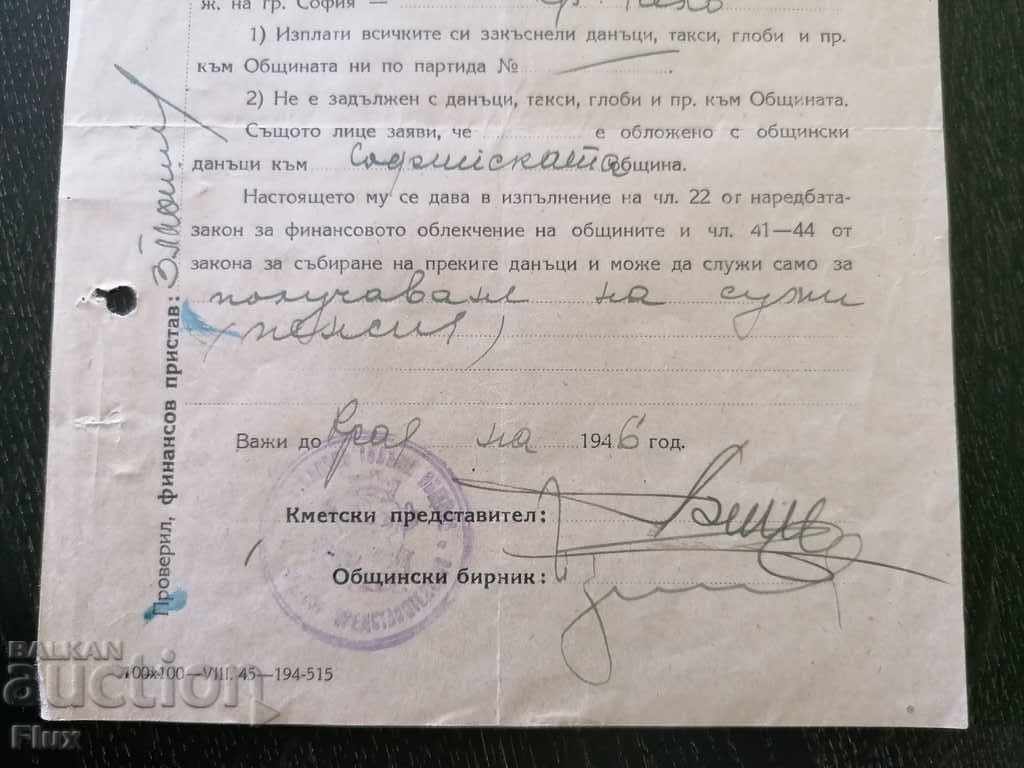 ж. на гр. София —
1) Изплати всичките си закъснели данъци, такси, глоби и пр.
към Общината ни по партида №
2) Не е задължен с данъци, такси, глоби и пр. към Общината.
Същото лице заяви, че е обложено с общински
данъци към Софийската община.
Настоящето му се дава в изпълнение на чл. 22 от наредбата-
закон за финансовото облекчение на общините и чл. 41—44 от
закона за събиране на преките данъци и може да служи само за
получаване на
(пенсия)
Важи до край на 1946 год.
Кметски представител:
Общински бирник:
100x100—VIII. 45—194-515
Проверил, финансов пристав:
BALKAN
auction
Flux